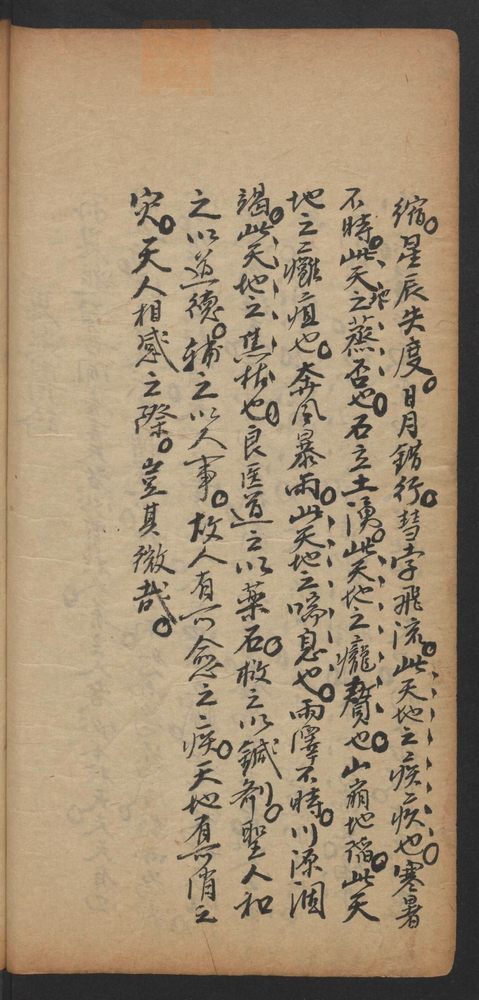 縮。星辰失度。日月錯行。彗孛飛流。此天地之疾疢也。寒暑
不時。此天地之蒸否也。石立土湧。此天地之癰贅也。山崩地陷。此天
地之癰疽也。奔風暴雨。此天地之喘息也。雨澤不時。川源涸
竭。此天地之焦枯也。良医道之以薬石。救之以鍼剤。聖人和
之以道徳。輔之以人事。故人有可愈之疾。天地有可消之
灾。天人相感之際。豈其微哉。